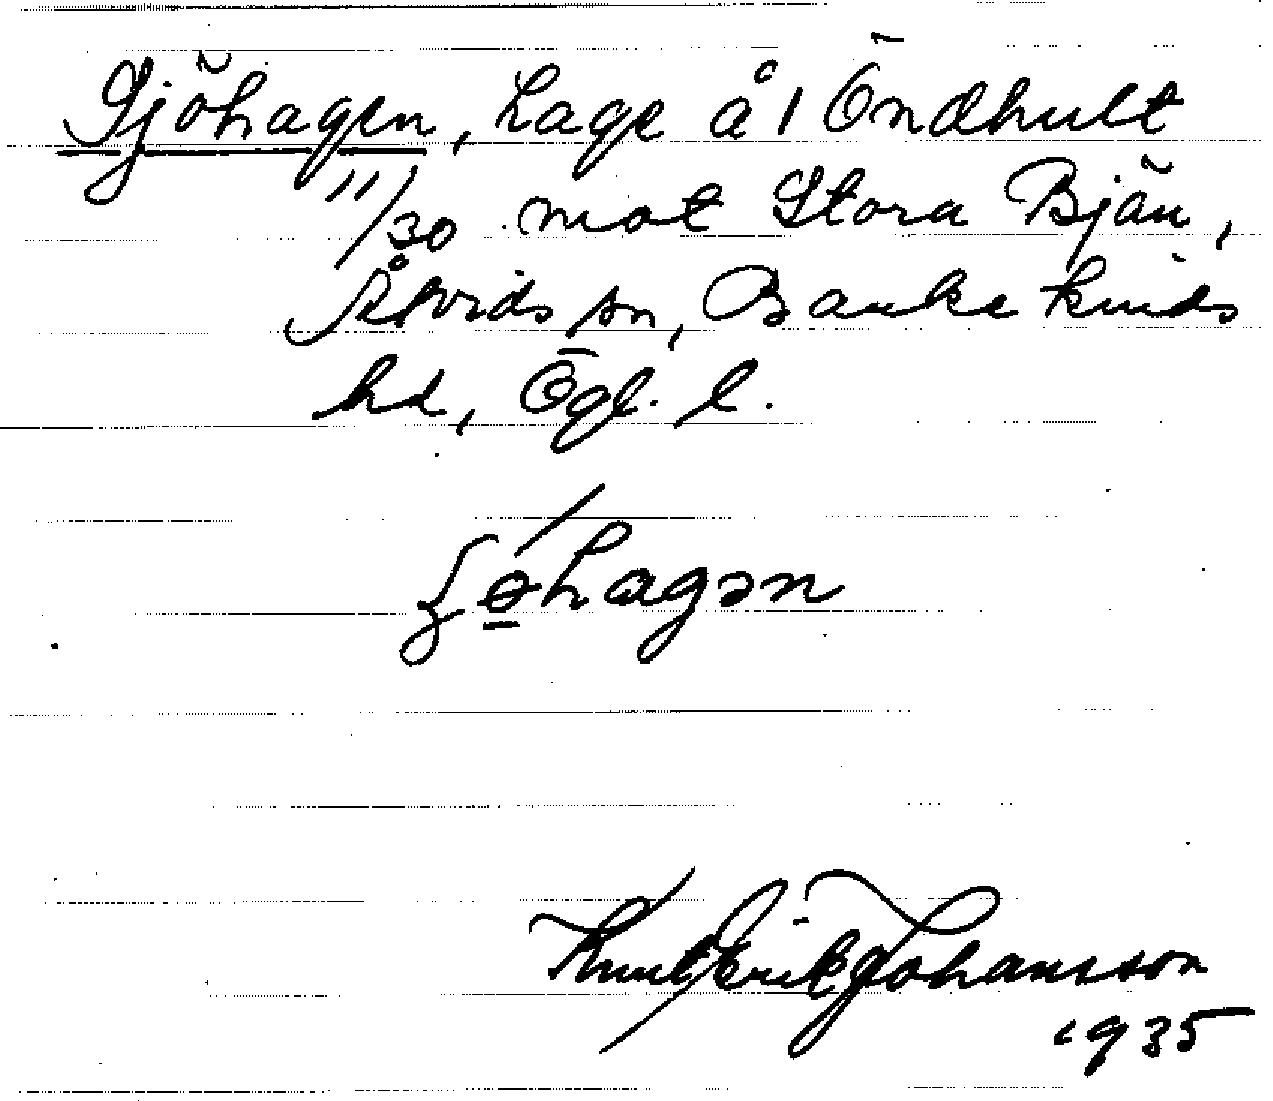 Sjöhagen, hage å 1 Öndhult
11/30 mot Stora Bjän,
Åtvids sn, Bankekinds
hd, Ögl. l.
ʃø´hagən
Knut Erik Johansson
1935